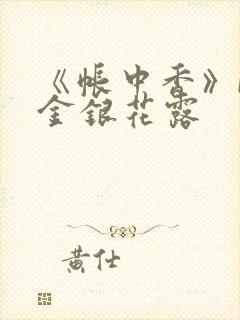 《帐中香》
金银花露
黄仕